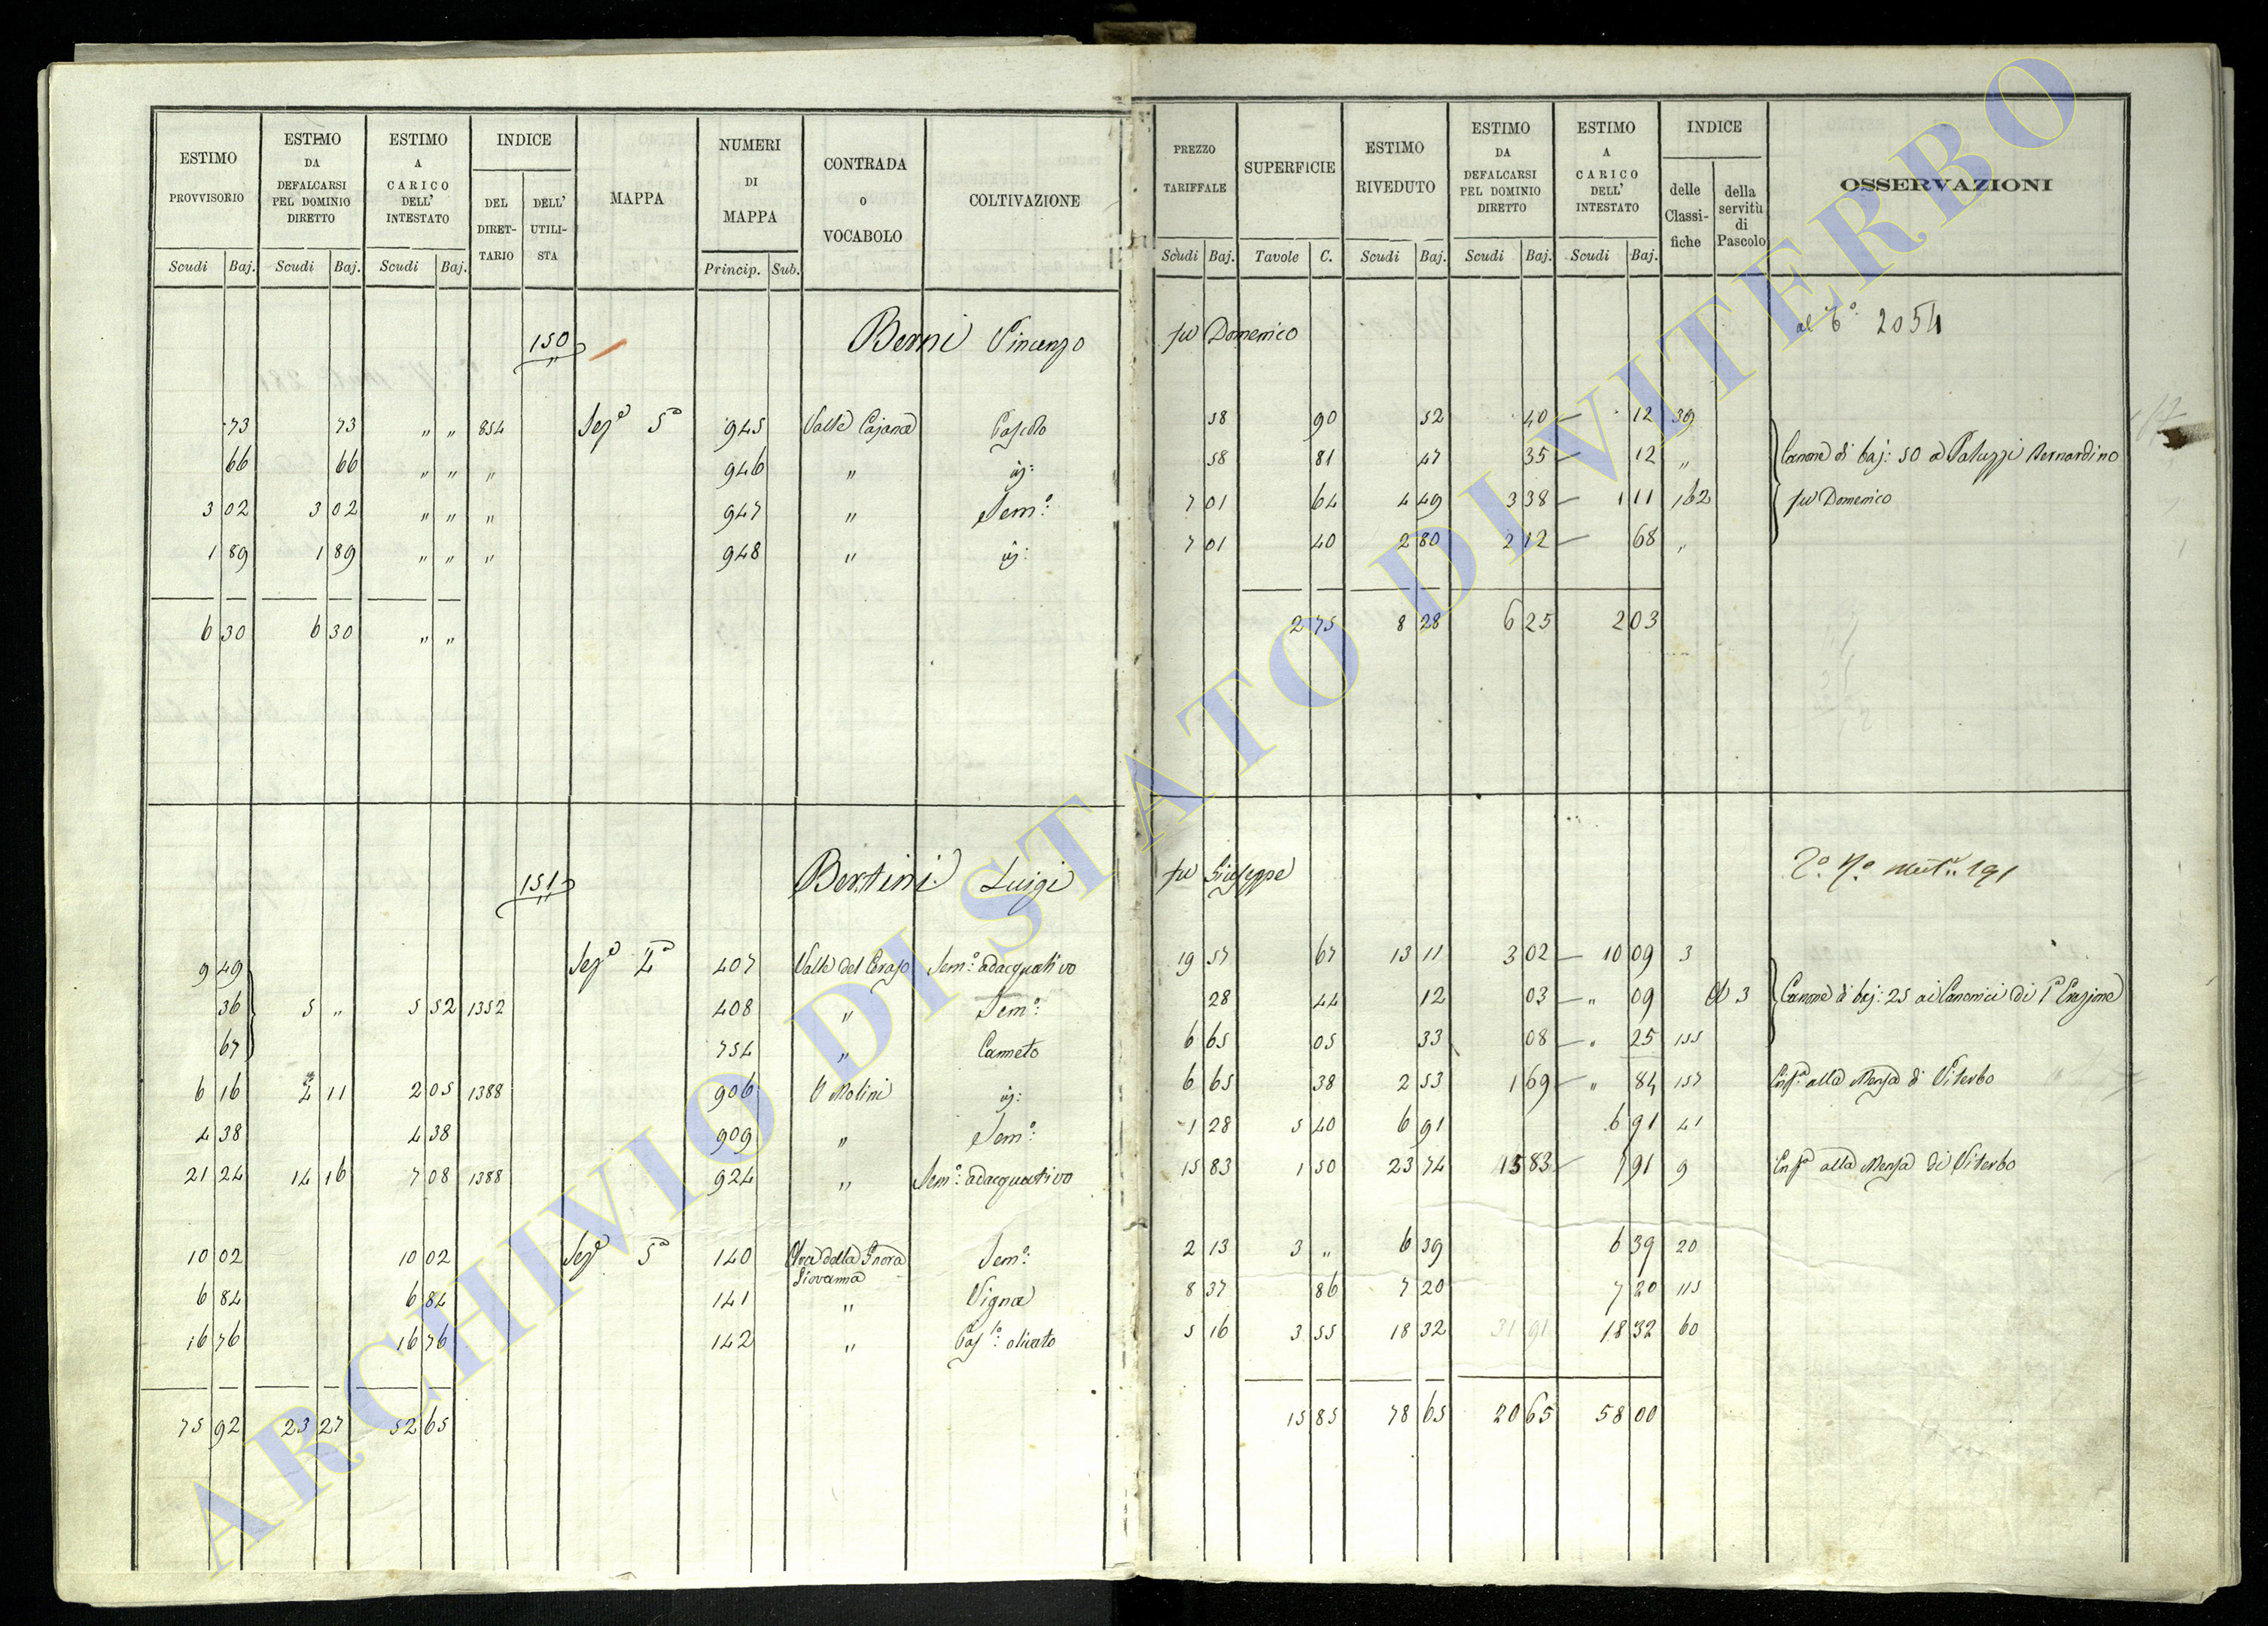 ESTIMO PROVVISORIO Scudi Baj.
ESTIMO DA DEFALCARSI PEL DOMINIO DIRETTO Scudi Baj.
ESTIMO A CARICO DELL' INTESTATO Scudi Baj.
INDICE DEL DIRET- TARIO DELL' UTILI- STA
MAPPA
NUMERI DI MAPPA Princip. Sub.
CONTRADA O VOCABOLO
COLTIVAZIONE
PREZZO TARIFFALE Scudi Baj.
SUPERFICIE Tavole C.
ESTIMO RIVEDUTO Scudi Baj.
ESTIMO DA DEFALCARSI PEL DOMINIO DIRETTO Scudi Baj.
ESTIMO A CARICO DELL' INTESTATO Scudi Baj.
INDICE delle Classi- fiche della servitù di Pascolo
OSSERVAZIONI
150 Berni Vincenzo fu Domenico 2054
73 73 " " 854 Sezᵉ 5ᵃ 945 Valle Cajana Pascolo 58 90 52 40 — 12 39
66 66 " " " 946 " id: 58 81 47 35 — 12 " Canone di baj: 50 a Paluzzi Bernardino
3 02 3 02 " " " 947 " Semº: 7 01 64 4 49 3 38 — 1 11 162 fu Domenico
1 89 1 89 " " " 948 " id: 7 01 40 2 80 2 12 — 68 "
6 30 6 30 " " 2 75 8 28 6 25 2 03
151 Bertini Luigi fu Giuseppe 191
9 49 Sezᵉ 407 Valle del Ceraso Semº: adacquativo 19 57 67 13 11 3 02 — 10 09 3
36 5 " 5 52 1352 408 " Semº: 28 44 12 03 — " 09 3 Canone di baj: 25 ai Canonici di
67 754 " Canneto 6 65 05 33 08 — " 25 155
6 16 11 2 05 1388 906 V Molini id: 6 65 38 2 53 1 69 — " 84 157 alla Mensa di Viterbo
4 38 4 38 909 " Semº: 1 28 5 40 6 91 6 91 41
21 24 14 16 7 08 1388 924 " Semº: adacquativo 15 83 1 50 23 74 15 83 — 7 91 9 alla Mensa di Viterbo
10 02 10 02 Sezᵉ 5ᵃ 140 della Giovanna Semº: 2 13 3 " 6 39 6 39 20
6 84 6 84 141 " Vigna 8 37 86 7 20 7 20 115
16 76 16 76 142 " Pasᵗº: olivato 5 16 3 55 18 32 31 91 18 32 60
75 92 23 27 52 65 15 85 78 65 20 65 58 00
ARCHIVIO DI STATO DI VITERBO